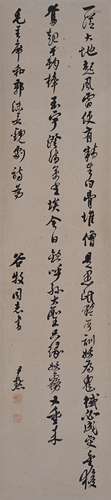 一從大地起風雷便有精生白骨堆僧是愚氓猶可訓妖為鬼蜮必成災金猴
奮起千鈞棒玉宇澄清萬里埃今日歡呼孫大聖只緣妖霧又重來
毛主席和郭沫若觀劇詩為
谷牧同志書
尹默